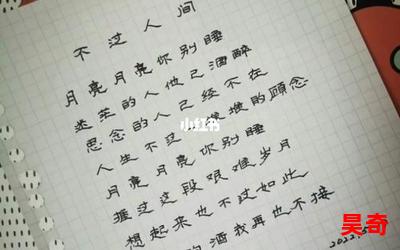 不过人间
月亮月亮你别睡
迷茫的人他已酒醉
思念的人已经不在
人生不过 堆的顾念
小红书
月亮月亮你别睡
过这段艰难岁月
想起来也不过如此
的酒我再也不接
2022.5
昊奇